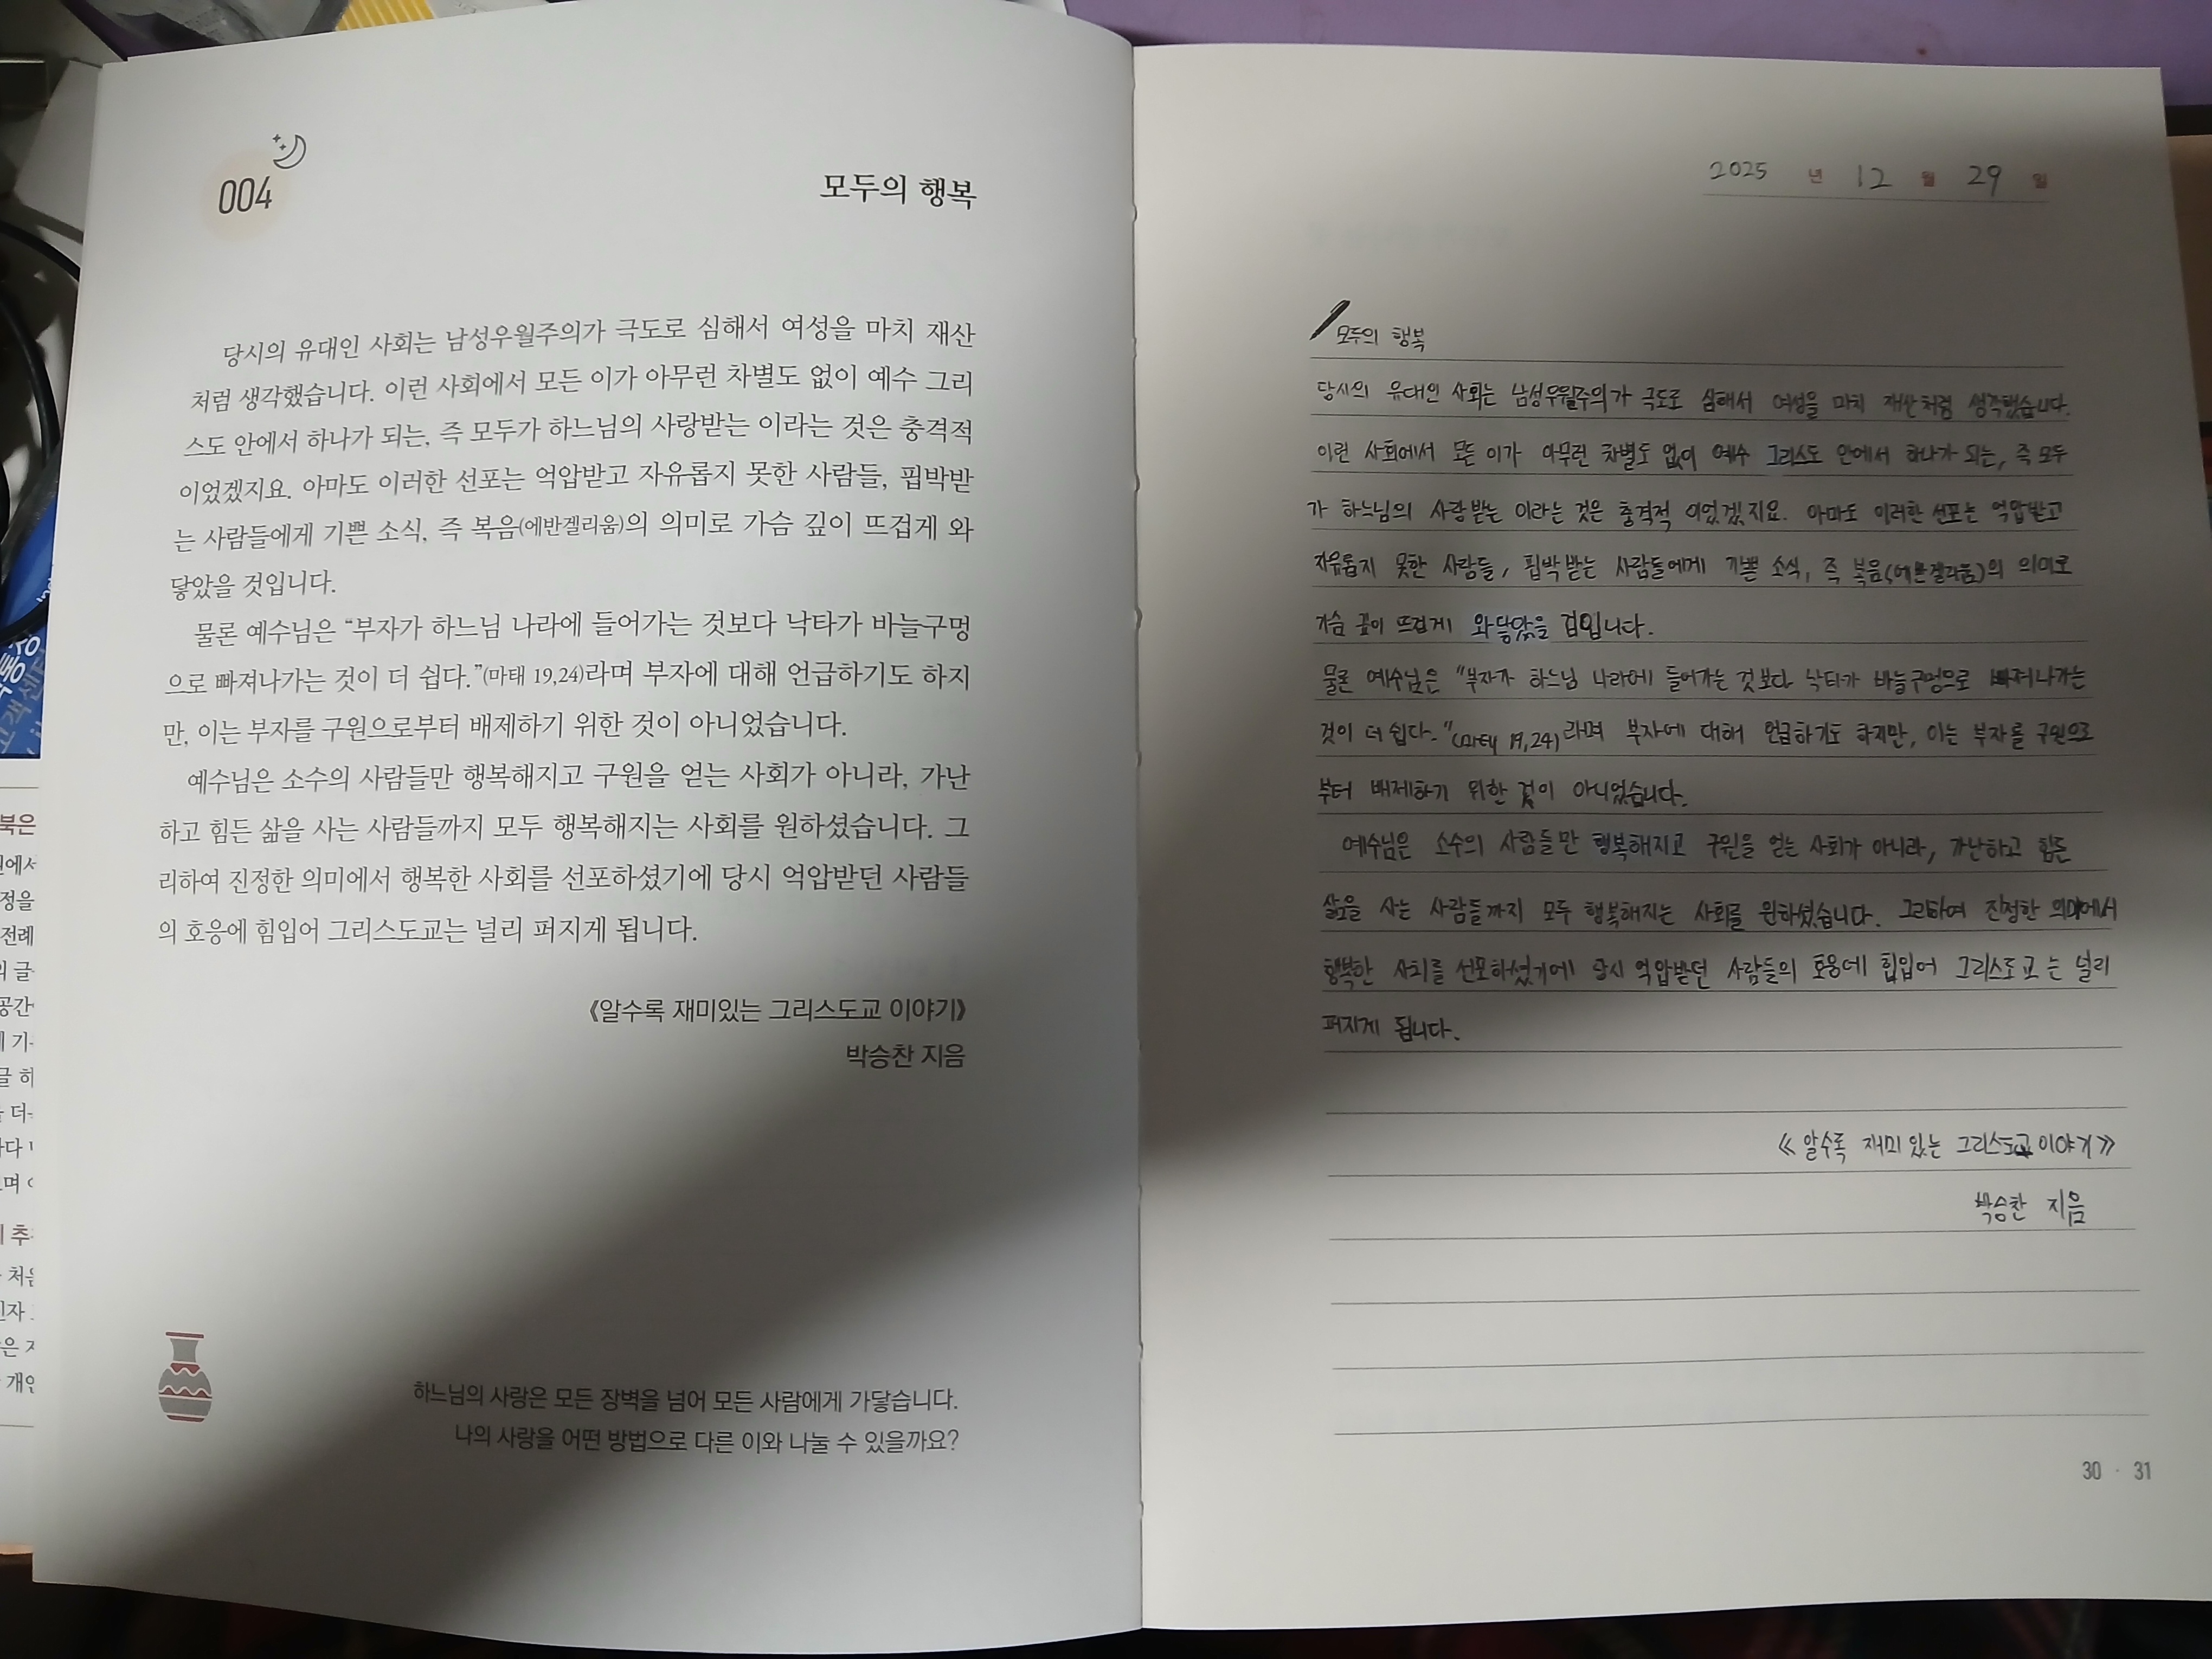 004
모두의 행복
당시의 유대인 사회는 남성우월주의가 극도로 심해서 여성을 마치 재산
처럼 생각했습니다. 이런 사회에서 모든 이가 아무런 차별도 없이 예수 그리
스도 안에서 하나가 되는, 즉 모두가 하느님의 사랑받는 이라는 것은 충격적
이었겠지요. 아마도 이러한 선포는 억압받고 자유롭지 못한 사람들, 핍박받
는 사람들에게 기쁜 소식, 즉 복음(에반겔리움)의 의미로 가슴 깊이 뜨겁게 와
닿았을 것입니다.
물론 예수님은 “부자가 하느님 나라에 들어가는 것보다 낙타가 바늘구멍
으로 빠져나가는 것이 더 쉽다.”(마태 19,24)라며 부자에 대해 언급하기도 하지
만, 이는 부자를 구원으로부터 배제하기 위한 것이 아니었습니다.
예수님은 소수의 사람들만 행복해지고 구원을 얻는 사회가 아니라, 가난
하고 힘든 삶을 사는 사람들까지 모두 행복해지는 사회를 원하셨습니다. 그
리하여 진정한 의미에서 행복한 사회를 선포하셨기에 당시 억압받던 사람들
의 호응에 힘입어 그리스도교는 널리 퍼지게 됩니다.
《알수록 재미있는 그리스도교 이야기》
박승찬 지음
하느님의 사랑은 모든 장벽을 넘어 모든 사람에게 가닿습니다.
나의 사랑을 어떤 방법으로 다른 이와 나눌 수 있을까요?
2025 년 12 월 29 일
모두의 행복
당시의 유대인 사회는 남성우월주의가 극도로 심해서 여성을 마치 재산처럼 생각했습니다.
이런 사회에서 모든 이가 아무런 차별도 없이 예수 그리스도 안에서 하나가 되는, 즉 모두
가 하느님의 사랑받는 이라는 것은 충격적 이었겠지요. 아마도 이러한 선포는 억압받고
자유롭지 못한 사람들, 핍박받는 사람들에게 기쁜 소식, 즉 복음(에반겔리움)의 의미로
가슴 깊이 뜨겁게 와닿았을 겁입니다.
물론 예수님은 "부자가 하느님 나라에 들어가는 것보다 낙타가 바늘구멍으로 빠져나가는
것이 더 쉽다."(마태 19,24)라며 부자에 대해 언급하기도 하지만, 이는 부자를 구원으로
부터 배제하기 위한 것이 아니었습니다.
예수님은 소수의 사람들만 행복해지고 구원을 얻는 사회가 아니라, 가난하고 힘든
삶을 사는 사람들까지 모두 행복해지는 사회를 원하셨습니다. 그리하여 진정한 의미에서
행복한 사회를 선포하셨기에 당시 억압받던 사람들의 호응에 힘입어 그리스도교는 널리
퍼지게 됩니다.
《알수록 재미있는 그리스도교 이야기》
박승찬 지음
30 · 31